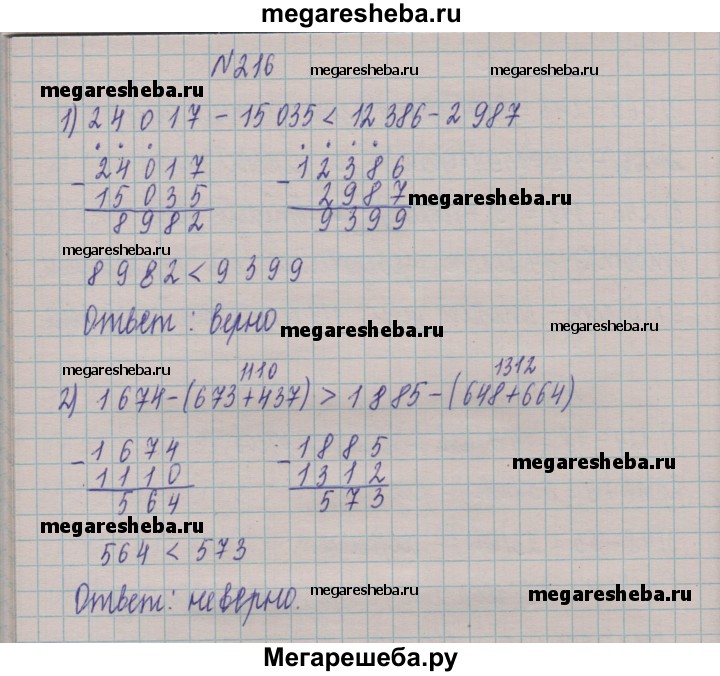 megaresheba.ru
N216
megaresheba.ru megaresheba.ru
megaresheba.ru
1) 24 017 - 15 035 < 12 386 - 2 987
- 24017 - 12386
15035 2987 megaresheba.ru
8982 9399
megaresheba.ru
8982 < 9399
Ответ: верно megaresheba.ru megaresheba.ru
megaresheba.ru 1110 1312
2) 1674 - (673 + 437) > 1885 - (648 + 664)
- 1674 - 1885
1110 1312 megaresheba.ru
564 573
megaresheba.ru
564 < 573
Ответ: неверно. megaresheba.ru megaresheba.ru
Мегарешеба.ру